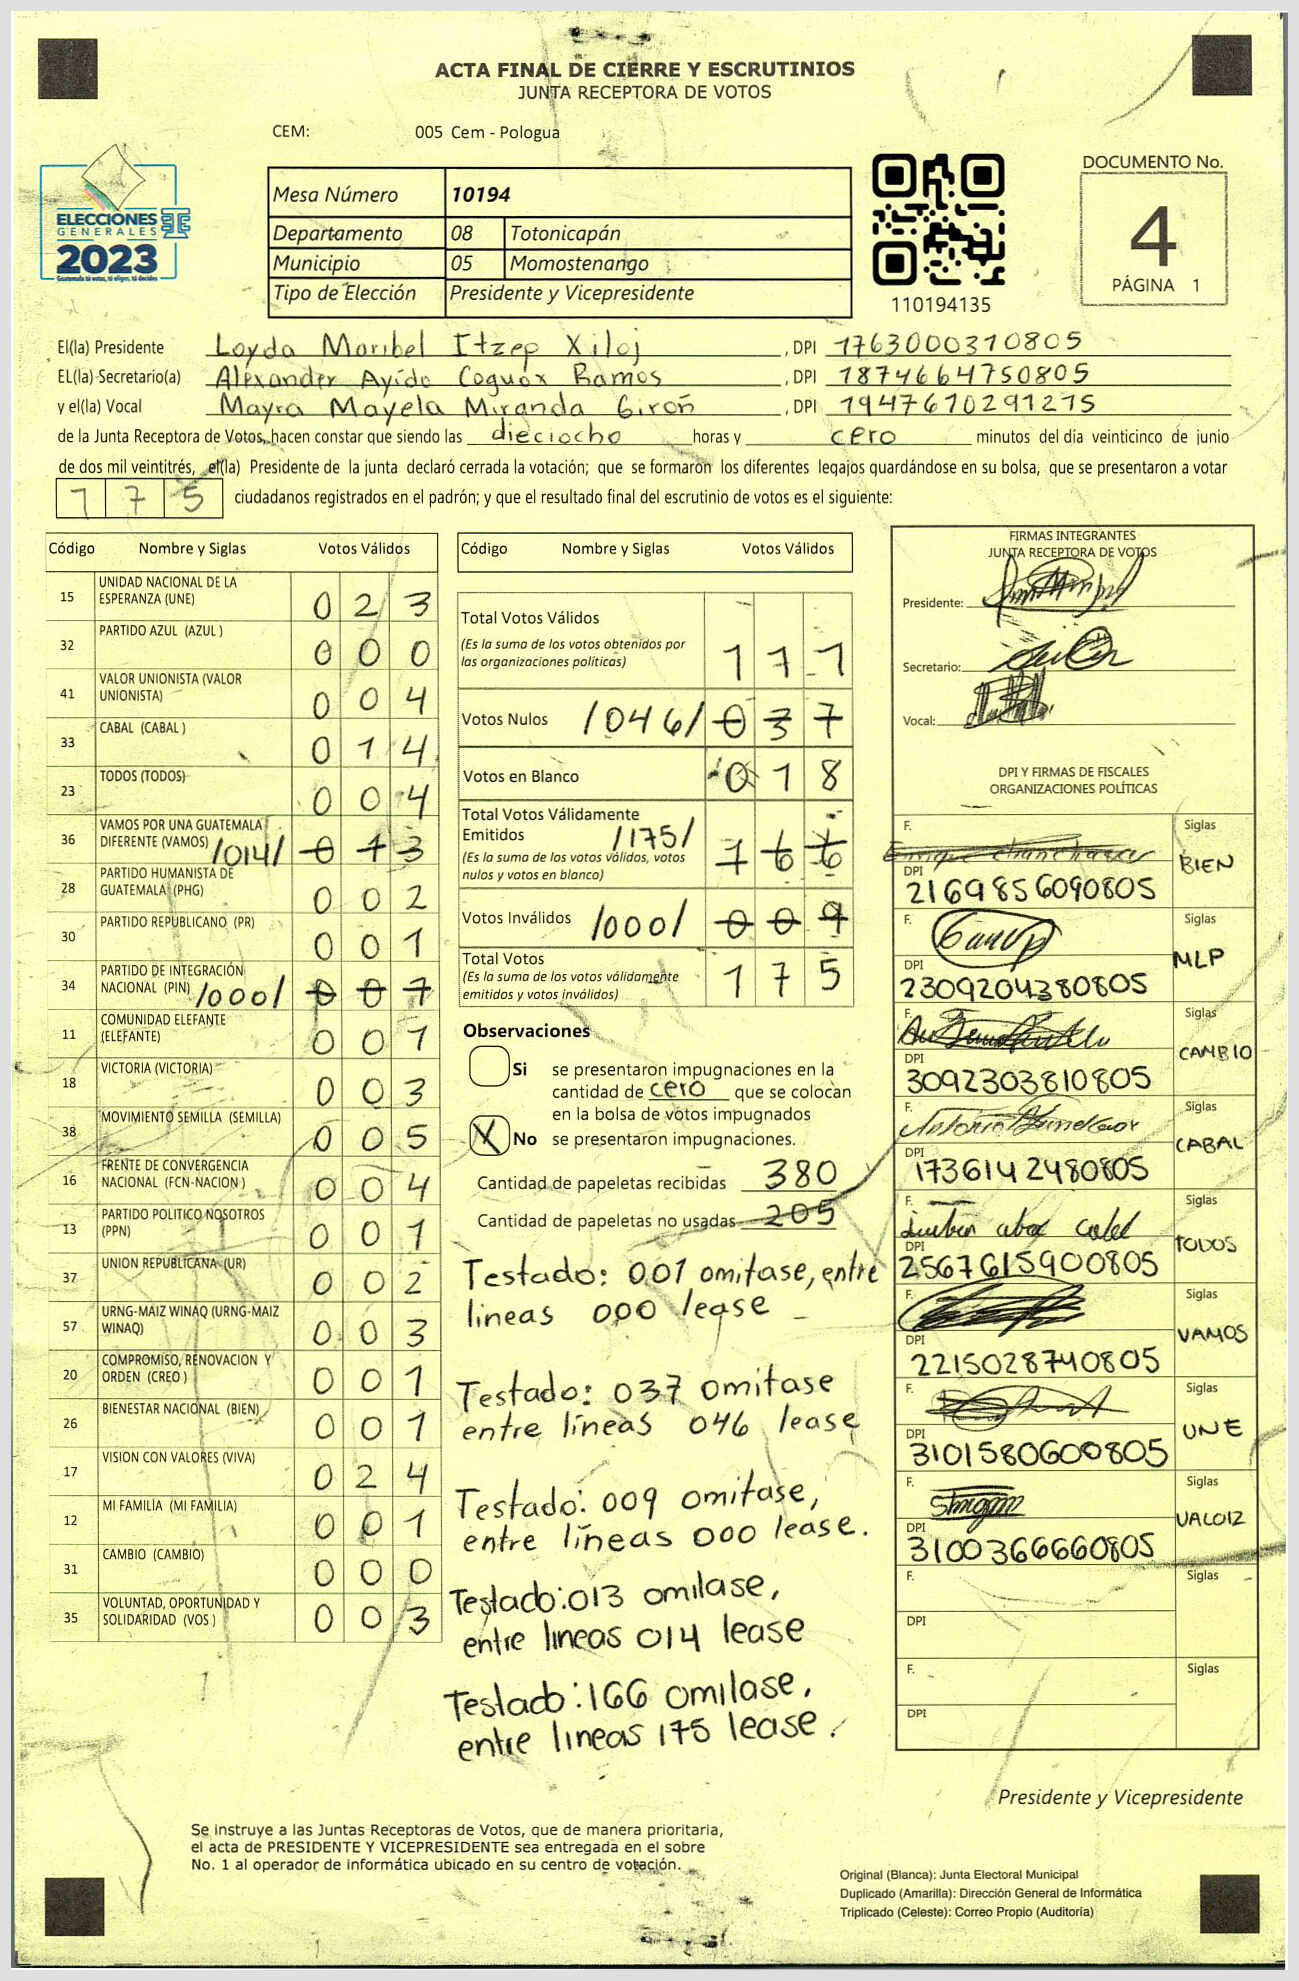 ACTA FINAL DE CIERRE Y ESCRUTINIOS
JUNTA RECEPTORA DE VOTOS
CEM: 005 Cem - Pologua
ELECCIONES
GENERALES
2023
Guatemala tú votas, tú eliges, tú decides
Mesa Número 10194
Departamento 08 Totonicapán
Municipio 05 Momostenango
Tipo de Elección Presidente y Vicepresidente
110194135
DOCUMENTO No.
4
PÁGINA 1
El(la) Presidente Loyda Maribel Itzep Xiloj, DPI 1763000310805
EL(la) Secretario(a) Alexander Ayido Coguox Ramos, DPI 1874664750805
y el(la) Vocal Mayra Mayela Miranda Giron, DPI 1947610291215
de la Junta Receptora de Votos, hacen constar que siendo las dieciocho horas y cero minutos del día veinticinco de junio
de dos mil veintitrés, el(la) Presidente de la junta declaró cerrada la votación; que se formaron los diferentes legajos quardándose en su bolsa, que se presentaron a votar
175 ciudadanos registrados en el padrón; y que el resultado final del escrutinio de votos es el siguiente:
Código Nombre y Siglas Votos Válidos
15 UNIDAD NACIONAL DE LA ESPERANZA (UNE) 0 2 3
32 PARTIDO AZUL (AZUL ) 0 0 0
41 VALOR UNIONISTA (VALOR UNIONISTA) 0 0 4
33 CABAL (CABAL ) 0 1 4
23 TODOS (TODOS) 0 0 4
36 VAMOS POR UNA GUATEMALA DIFERENTE (VAMOS) /014/ 0 1 3
28 PARTIDO HUMANISTA DE GUATEMALA (PHG) 0 0 2
30 PARTIDO REPUBLICANO (PR) 0 0 1
34 PARTIDO DE INTEGRACIÓN NACIONAL (PIN) /000/ 0 0 1
11 COMUNIDAD ELEFANTE (ELEFANTE) 0 0 1
18 VICTORIA (VICTORIA) 0 0 3
38 MOVIMIENTO SEMILLA (SEMILLA) 0 0 5
16 FRENTE DE CONVERGENCIA NACIONAL (FCN-NACION ) 0 0 4
13 PARTIDO POLITICO NOSOTROS (PPN) 0 0 1
37 UNION REPUBLICANA (UR) 0 0 2
57 URNG-MAIZ WINAQ (URNG-MAIZ WINAQ) 0 0 3
20 COMPROMISO, RENOVACION Y ORDEN (CREO ) 0 0 1
26 BIENESTAR NACIONAL (BIEN) 0 0 1
17 VISION CON VALORES (VIVA) 0 2 4
12 MI FAMILIA (MI FAMILIA) 0 0 1
31 CAMBIO (CAMBIO) 0 0 0
35 VOLUNTAD, OPORTUNIDAD Y SOLIDARIDAD (VOS ) 0 0 3
Código Nombre y Siglas Votos Válidos
Total Votos Válidos 1 1 1
(Es la suma de los votos obtenidos por
las organizaciones políticas)
Votos Nulos /046/ 0 3 7
Votos en Blanco 0 1 8
Total Votos Válidamente
Emitidos /175/ 1 6 6
(Es la suma de los votos válidos, votos
nulos y votos en blanco)
Votos Inválidos /000/ 0 0 9
Total Votos 1 7 5
(Es la suma de los votos válidamente
emitidos y votos inválidos)
Observaciones
Si se presentaron impugnaciones en la
cantidad de cero que se colocan
en la bolsa de votos impugnados
X No se presentaron impugnaciones.
Cantidad de papeletas recibidas 380
Cantidad de papeletas no usadas 205
Testado: 001 omitase, entre
lineas 000 lease
Testado: 037 omitase
entre líneas 046 lease
Testado: 009 omitase,
entre líneas 000 lease.
Testado: 013 omitase,
entre lineas 014 lease
Testado: 166 omitase,
entre lineas 175 lease.
FIRMAS INTEGRANTES
JUNTA RECEPTORA DE VOTOS
Presidente:
Secretario:
Vocal:
DPI Y FIRMAS DE FISCALES
ORGANIZACIONES POLÍTICAS
F. Siglas
BIEN
DPI 2169856090805
F. Siglas
MLP
DPI 2309204380805
F. Siglas
CAMBIO
DPI 3092303810805
F. Siglas
CABAL
DPI 1736142480805
F. Siglas
TODOS
DPI 2567615900805
F. Siglas
VAMOS
DPI 2215028740805
F. Siglas
UNE
DPI 3101580600805
F. Siglas
VALOR
DPI 3100366660805
F. Siglas
DPI
F. Siglas
DPI
Presidente y Vicepresidente
Se instruye a las Juntas Receptoras de Votos, que de manera prioritaria,
el acta de PRESIDENTE Y VICEPRESIDENTE sea entregada en el sobre
No. 1 al operador de informática ubicado en su centro de votación.
Original (Blanca): Junta Electoral Municipal
Duplicado (Amarilla): Dirección General de Informática
Triplicado (Celeste): Correo Propio (Auditoría)